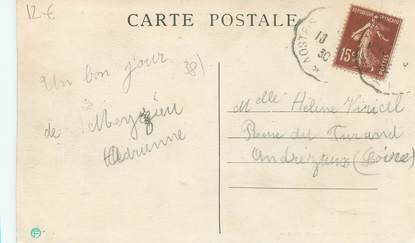 12.€
CARTE POSTALE
RÉPUBLIQUE FRANÇAISE
15c
18
30
Un bon jour
38)
de Meyzieu
Adrienne
Melle Hélène Viricel
Rue du Furand
Andrézieux (Loire)